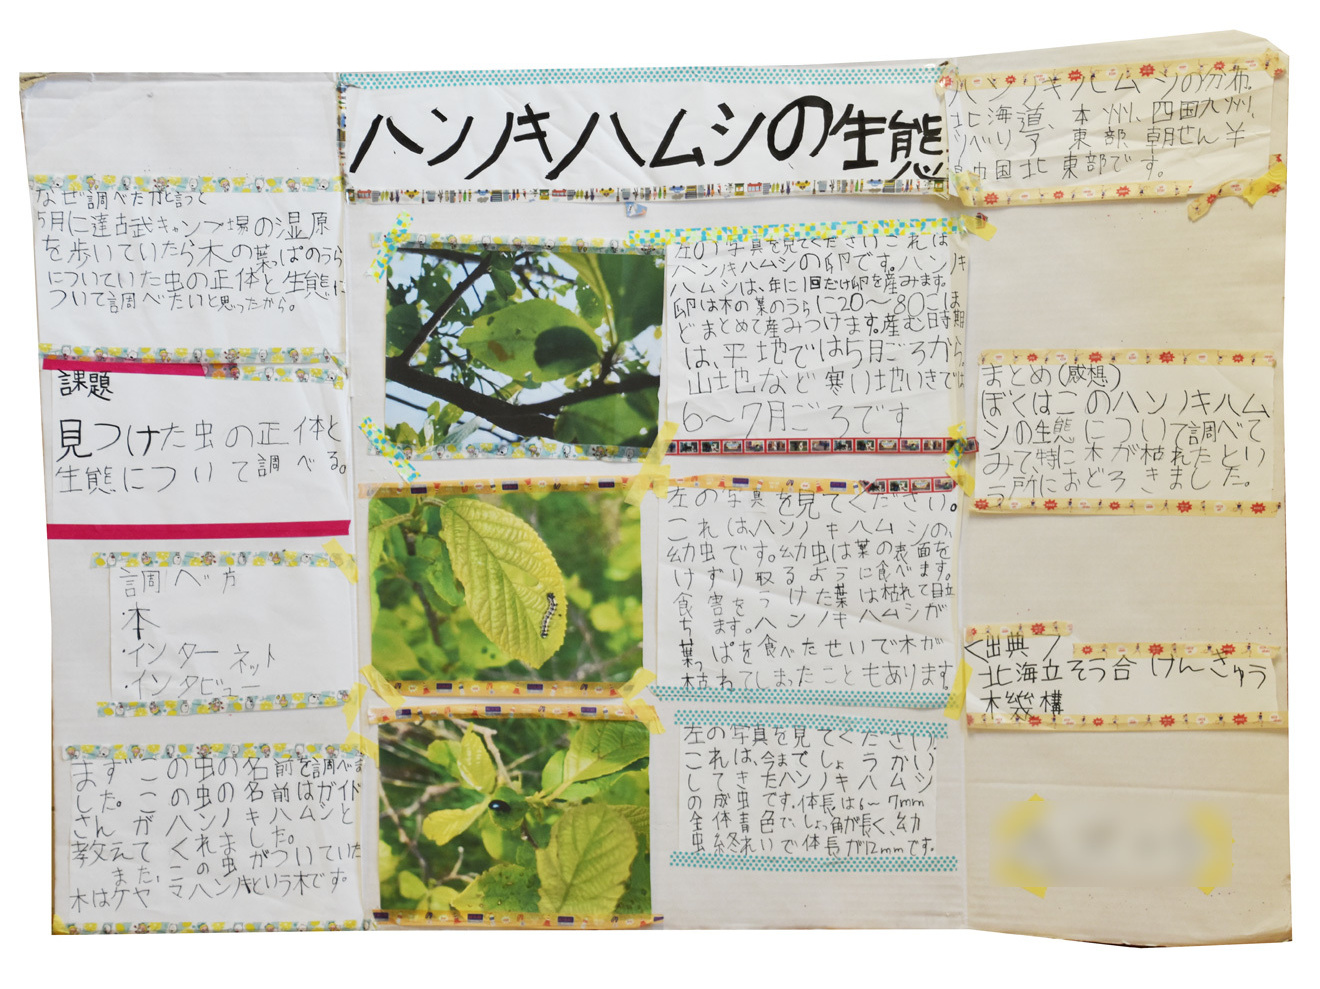 ハンノキハムシの生態
なぜ調べた方と言って
5月に達古武キャンプ場の湿原
を歩いていたら木の葉っぱのうら
についていた虫の正体と生態に
ついて調べたいと思ったから。
課題
見つけた虫の正体と
生態について調べる。
調べ方
・本
・インターネット
・インタビュー
まずこの虫の名前を調べま
した。この虫の名前はガイド
さんがハンノキハムシと
教えてくれました。
また、この虫がついていた
木はケヤマハンノキという木です。
左の写真を見てくださいこれは
ハンノキハムシの卵です。ハンノキ
ハムシは、年に1回だけ卵を産みます。
卵は木の葉のうらに20〜80こほ
どまとめて産みつけます。産む時期
は、平地では5月ごろから、
山地など寒い地いきでは
6〜7月ごろです
左の写真を見てください。
これはハンノキハムシの、
幼虫です。幼虫は葉の表面を
けずり取るように食べます。
食害をうけた葉は枯れて目立
ちます。ハンノキハムシが
葉っぱを食べたせいで木が
枯れてしまったこともあります。
左の写真を見てください。
これは、今までしょうかい
してきたハンノキハムシ
の成虫です。体長は6〜7mm
全体青色で、しょっ角が長く、幼
虫終れいで体長が12mmです。
ハンノキハムシの分布。
北海道、本州、四国九州、
シベリア東部朝せん半
島中国北東部です。
まとめ(感想)
ぼくはこのハンノキハム
シの生態について調べて
みて特に木が枯れたとい
う所におどろきました。
<出典>
北海立そう合けんきゅう
木幾構